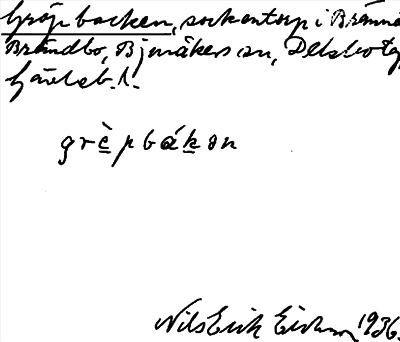 Gröpbacken, sockentorp i Brännå
Brändbo, Bjuråkers sn, Delsbo tg,
Gävleb. l.
grè̱pbáḵon
Nils Erik Eriksson 1936.